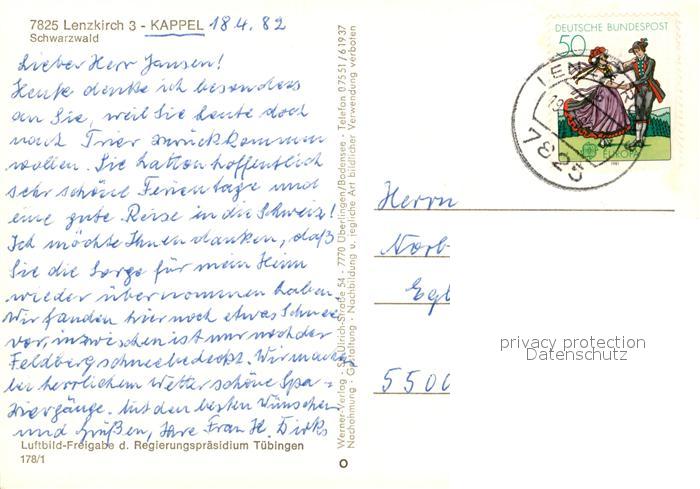 7825 Lenzkirch 3 - KAPPEL 18.4.82
Schwarzwald
Lieber Herr Jansen!
Heute denke ich besonders
an Sie, weil Sie heute doch
nach Trier zurückkommen
wollen. Sie hatten hoffentlich
sehr schöne Ferientage und
eine gute Reise in die Schweiz!
Ich möchte Ihnen danken, daß
Sie die Sorge für mein Heim
wieder übernommen haben.
Wir fanden hier noch etwas Schnee
vor, inzwischen ist nur noch der
Feldberg schneebedeckt. Wir machen
bei herrlichem Wetter schöne Spa-
ziergänge. Mit den besten Wünschen
und Grüßen, Ihre Frau H. Dirks
Luftbild-Freigabe d. Regierungspräsidium Tübingen
178/1
Werner-Verlag · St.-Ulrich-Straße 54 · 7770 Überlingen/Bodensee · Telefon 07551/61937
Nachahmung · Gestaltung · Nachbildung u. jegliche Art bildlicher Verwendung verboten
DEUTSCHE BUNDESPOST
50
EUROPA
7825
Herrn
Norb
Egl
5500
privacy protection
Datenschutz